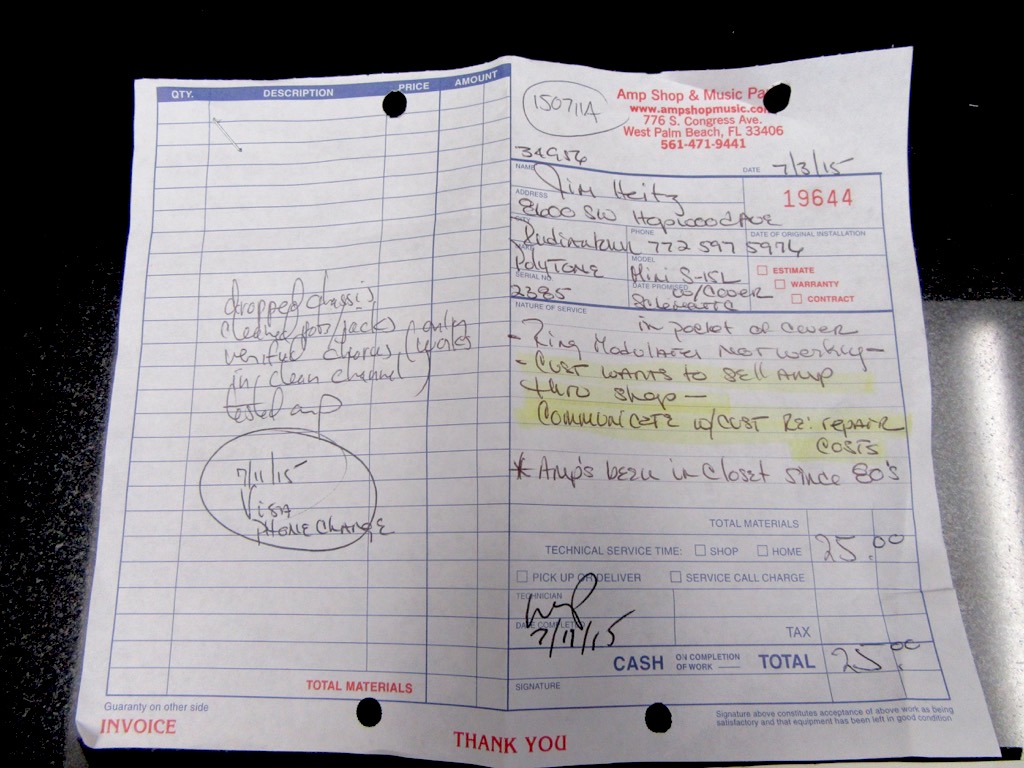 QTY. DESCRIPTION PRICE AMOUNT
dropped chassis
cleaned pots/jacks
only works
in clean channel
tested amp
7/11/15
Visa
PHONE CHARGE
TOTAL MATERIALS
Guaranty on other side
INVOICE
THANK YOU
150711A
Amp Shop & Music Pa
www.ampshopmusic.co
776 S. Congress Ave.
West Palm Beach, FL 33406
561-471-9441
34956
DATE 7/3/15
NAME Jim Heitz
19644
ADDRESS
8600 SW Hopwood Ave
PHONE DATE OF ORIGINAL INSTALLATION
772 597 5974
POLYTONE
MODEL
Mini S-15L
ESTIMATE
SERIAL NO. DATE PROMISED
w/Cover
WARRANTY
2385 Schematic
CONTRACT
NATURE OF SERVICE
in pocket of cover
- Ring Modulator Not working -
- Cust wants to sell Amp
thru shop -
Communicate w/cust Re: repair
costs
* Amp's been in closet since 80's
TOTAL MATERIALS
TECHNICAL SERVICE TIME: SHOP HOME 25.00
PICK UP OR DELIVER SERVICE CALL CHARGE
TECHNICIAN
DATE COMPLETED
7/11/15
TAX
CASH ON COMPLETION OF WORK TOTAL 25.00
SIGNATURE
Signature above constitutes acceptance of above work as being
satisfactory and that equipment has been left in good condition